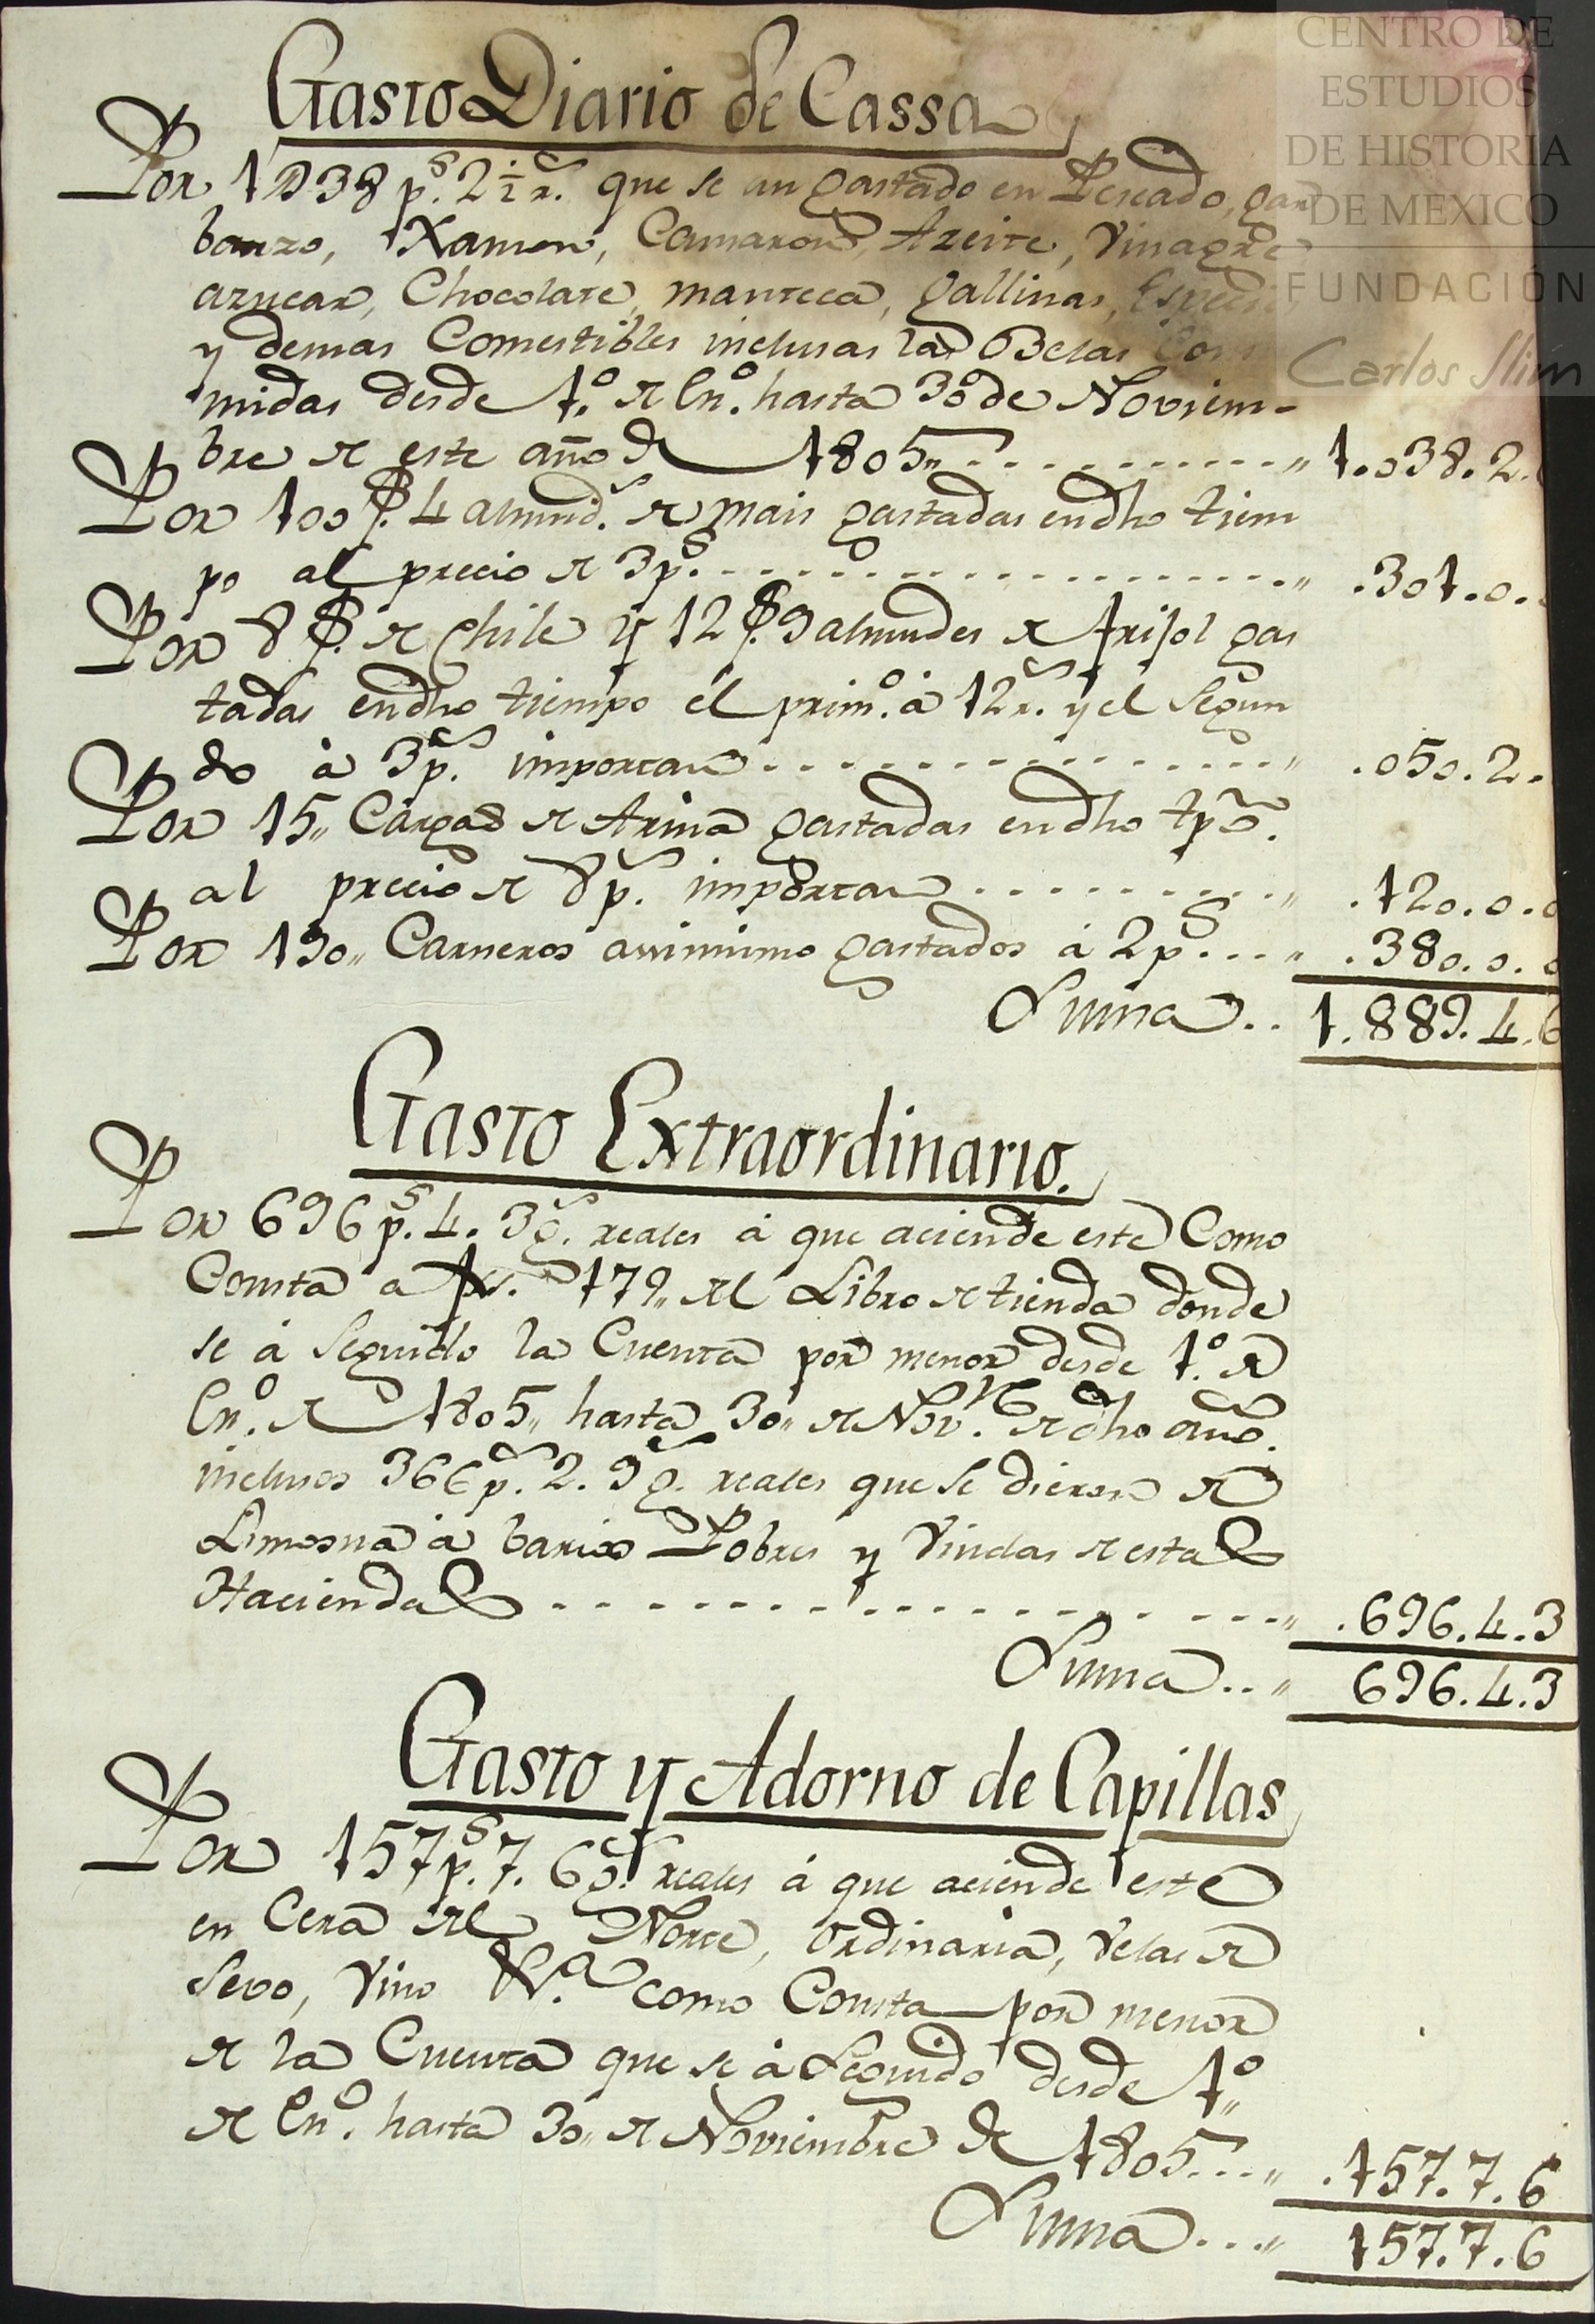 Gasto Diario de Cassa
Por 1038 p.s 2½ r.s que se an gastado en Pescado, gar
banzo, Xamon, Camaron, Azeite, Vinagre
azucar, Chocolate, manteca, gallinas,
y demas Comestibles inclusas las Belas
midas desde 1.o de En.o hasta 30 de Noviem-
bre de este año de 1805,, 1.038.2.
Por 100 f. 4 almud.s de mais gastadas en dho tiem
po al precio de 3 p.s .301.0.
Por 8 f. de Chile y 12 f. 9 almudes de frisol gas
tadas en dho tiempo el prim.o à 12 r.s y el segun
do à 3 p.s importan .050.2.
Por 15,, Cargas de Arina gastadas en dho tpõ.
al precio de 8 p.s importan .120.0.0
Por 190,, Carneros assimismo gastados à 2 p.s .380.0.0
Suma.. 1.889.4.6
Gasto Extraordinario.
Por 696 p.s 4. 3 g.s reales à que aciende este Como
Consta a fs. 179,, del Libro de tienda donde
se à seguido la Cuenta por menor desde 1.o de
En.o de 1805,, hasta 30,, de Nov.re de dho año.
inclusos 366 p.s 2. 9 g.s reales que se dieron de
Limosna à barios Pobres y Viudas de esta
Hacienda .696.4.3
Suma.. 696.4.3
Gasto y Adorno de Capillas
Por 157 p.s 7. 6 g.s reales à que aciende este
en Cera del Norte, ordinaria, Velas de
sevo, Vino &.a como Consta por menor
de la Cuenta que se à Seguido desde 1.o
de En.o hasta 30,, de Noviembre de 1805... .157.7.6
Suma... 157.7.6
CENTRO DE
ESTUDIOS
DE HISTORIA
DE MEXICO
FUNDACIÓN
Carlos Slim